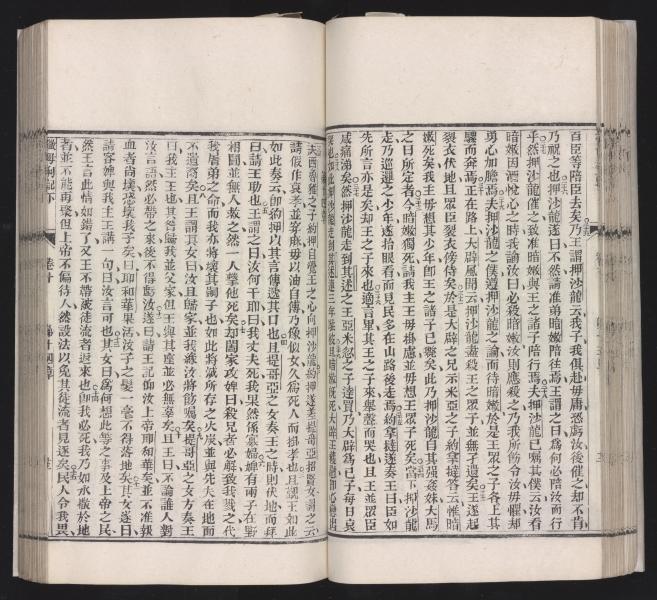 百臣等陪臣去矣乃王謂押沙龍云我子我俱赴毋庸恐爲汝後催之却不肯
乃祝之也押沙龍遂曰不然請准弟暗嫩陪往焉王謂之曰爲何必陪汝而行
乎然押沙龍催之致准暗嫩與王之諸子陪行焉夫押沙龍已囑其僕云汝看
暗嫩因酒悅心之時我諭汝曰必殺暗嫩汝則應殺之乃我所飭令汝毋懼却
勇心如膽焉夫押沙龍之僕遵押沙龍之諭而待暗嫩於是王眾之子各上其
騾而奔焉正在路上大辟風聞云押沙龍盡殺王之眾子並無孑遺矣王遂起
裂衣伏地且眾臣裂衣傍侍矣於是大辟之兄示米亞之子約拿撻答云惟暗
嫩死矣我主毋想其少年卽王之諸子已斃矣此乃押沙龍自其强姦妹大馬
之日所定者今暗嫩獨死請我主王毋掛慮並毋想王眾子死矣當下押沙龍
走乃巡邏之少年遂抬眼看而見民多在山路後走焉約拿撻遂奏王曰臣如
先所言亦是矣却王之子來也適言畢其王之子來舉聲而哭也且王並眾臣
咸痛涕矣然押沙龍走到其述之王亞米忽之子達買乃大辟爲己子每日哀
夫西魯雅之子約押自覺王之心向押沙龍約押遂差提哥亞招賢女謂之云
請汝假作哀孝並穿麻毋以油自傅乃像似女久爲死人而掛孝也且謁王如此
如此奏云卽約押以其言傳遞其口也且提哥亞之女奏王之時則伏地而拜
曰請王助也王謂之曰汝何干耶曰我丈夫死我果然係寡婦婢有兩子在野
相鬪並無人救之然一人擊他死矣却闔家攻婢曰殺兄者必解致我戕之代
我屠弟之命而我亦將壞其嗣子也如此將滅所存之火炭並與先夫在地而
不遺裔矣且王謂其女曰汝且歸家並我爲汝將飭囑矣提哥亞之女方奏王
曰我主王也其咎歸我並父家但王與其座並必無辜矣且王曰不論誰人對
汝言語然必帶之來後不得觸汝遂曰請王記仰汝上帝耶和華矣並不准報
血者尚壞恐壞我子矣曰耶和華活汝子之髮一毫不得落地矣其女遂曰
請容婢與我主王講一句曰汝言可也其女曰爲何想此等之事及上帝之民
然王言此情如錯了又王不帶被徒流者返來也卽我必死我乃如水撥於地
者並不能再聚但上帝不偏待人然設法以免其徒流者見逐矣民人令我畏
卷十